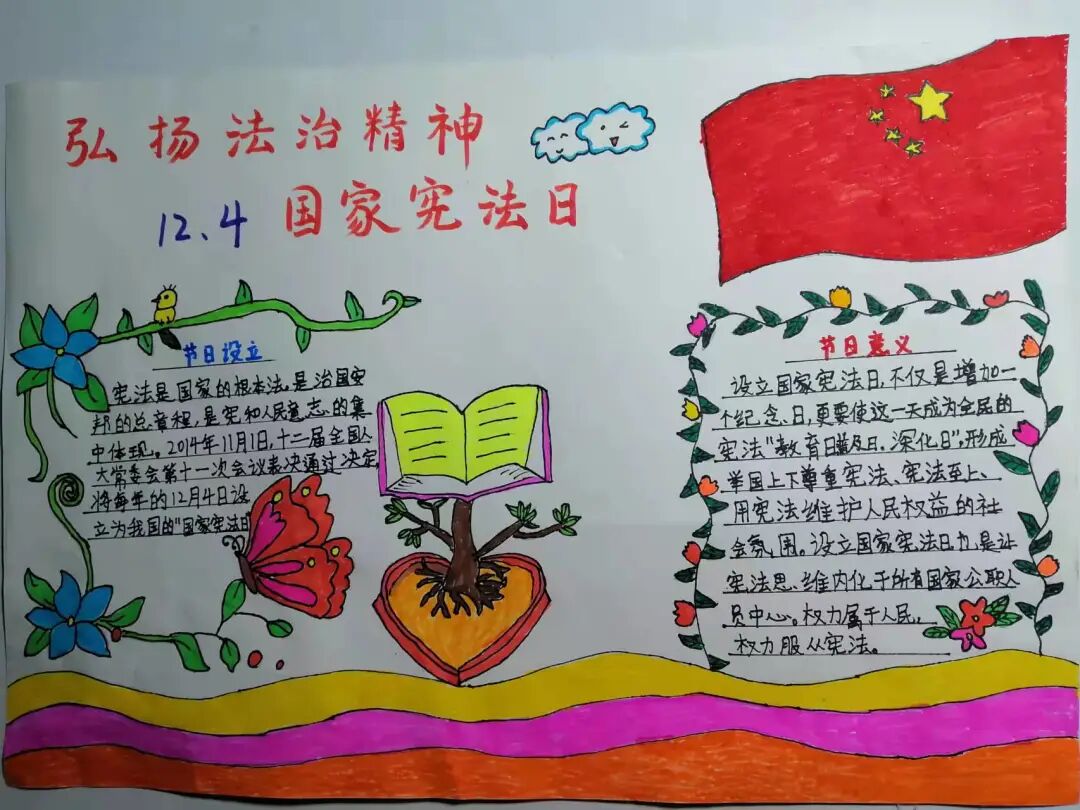 弘扬法治精神
12、4 国家宪法日
节日设立
宪法是国家的根本法,是治国安
邦的总章程,是党和人民意志的集
中体现。2014年11月1日,十二届全国人
大常委会第十一次会议表决通过决定,
将每年的12月4日设
立为我国的"国家宪法日
节日意义
设立国家宪法日,不仅是增加一
个纪念日,更要使这一天成为全民的
宪法"教育日普及日,深化日",形成
举国上下尊重宪法、宪法至上、
用宪法维护人民权益的社
会氛围。设立国家宪法日,是让
宪法思维内化于所有国家公职人
员中心。权力属于人民,
权力服从宪法。